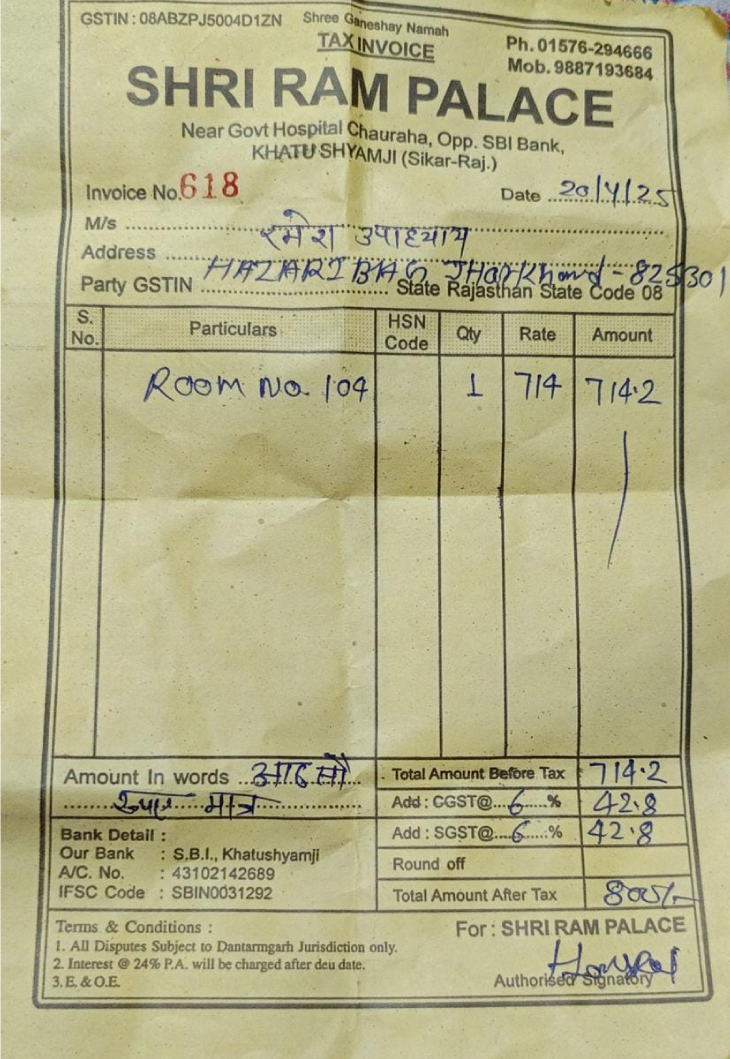 GSTIN : 08ABZPJ5004D1ZN
Shree Ganeshay Namah
TAX INVOICE
Ph. 01576-294666
Mob. 9887193684
SHRI RAM PALACE
Near Govt Hospital Chauraha, Opp. SBI Bank,
KHATU SHYAMJI (Sikar-Raj.)
Invoice No. 618
Date 20/4/25
M/s रमेश उपाध्याय
Address HAZARIBAG JHarKhand - 825301
Party GSTIN State Rajasthan State Code 08
S. No. Particulars HSN Code Qty Rate Amount
Room No. 104 1 714 714.2
Amount In words आठ सौ
रुपए मात्र
Total Amount Before Tax 714.2
Add : CGST@ 6 % 42.8
Add : SGST@ 6 % 42.8
Round off
Total Amount After Tax 800/-
Bank Detail :
Our Bank : S.B.I., Khatushyamji
A/C. No. : 43102142689
IFSC Code : SBIN0031292
Terms & Conditions :
1. All Disputes Subject to Dantarmgarh Jurisdiction only.
2. Interest @ 24% P.A. will be charged after deu date.
3. E. & O.E.
For : SHRI RAM PALACE
Authorised Signatory